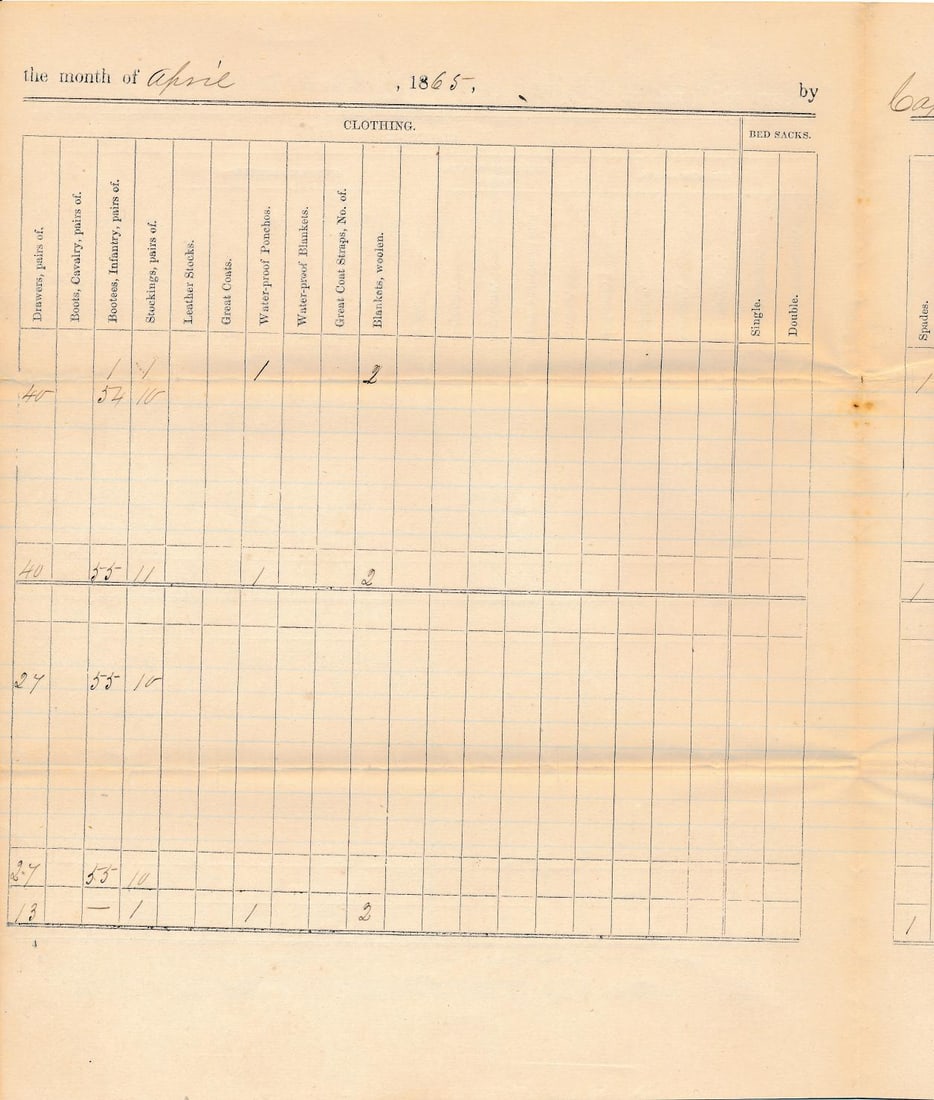 the month of April, 1865, by
CLOTHING.
BED SACKS.
Drawers, pairs of.
Boots, Cavalry, pairs of.
Bootees, Infantry, pairs of.
Stockings, pairs of.
Leather Stocks.
Great Coats.
Water-proof Ponchos.
Water-proof Blankets.
Great Coat Straps, No. of.
Blankets, woolen.
Single.
Double.
Spades.
1 1 1 2 1
40 54 10
40 55 11 1 2 1
27 55 10
27 55 10
13 — 1 1 2 1
4